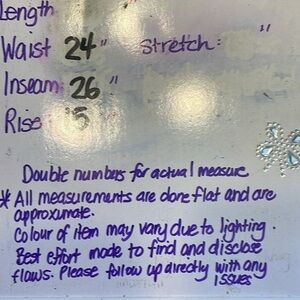 Length
Waist 24" Stretch: "
Inseam 26 "
Rise 5 "
Double numbers for actual measure
* All measurements are done flat and are
approximate.
Colour of item may vary due to lighting.
Best effort made to find and disclose
flaws. Please follow up directly with any
issues